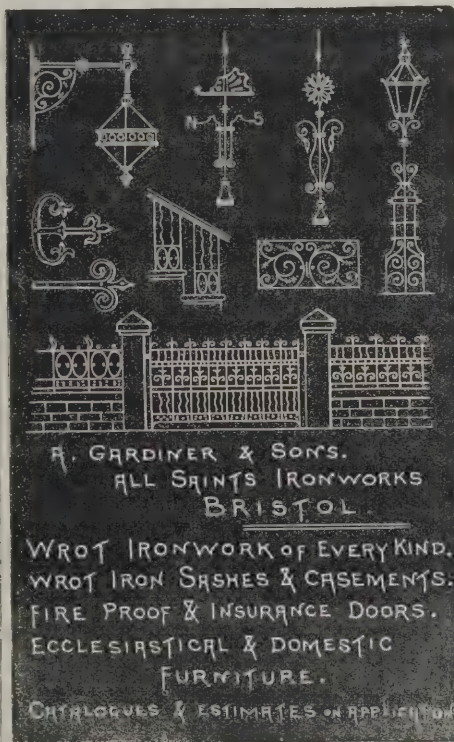 N S
A. GARDINER & SONS.
ALL SAINTS IRONWORKS
BRISTOL.
WROT IRONWORK OF EVERY KIND.
WROT IRON SASHES & CASEMENTS.
FIRE PROOF & INSURANCE DOORS.
ECCLESIASTICAL & DOMESTIC
FURNITURE.
CATALOGUES & ESTIMATES ON APPLICATION